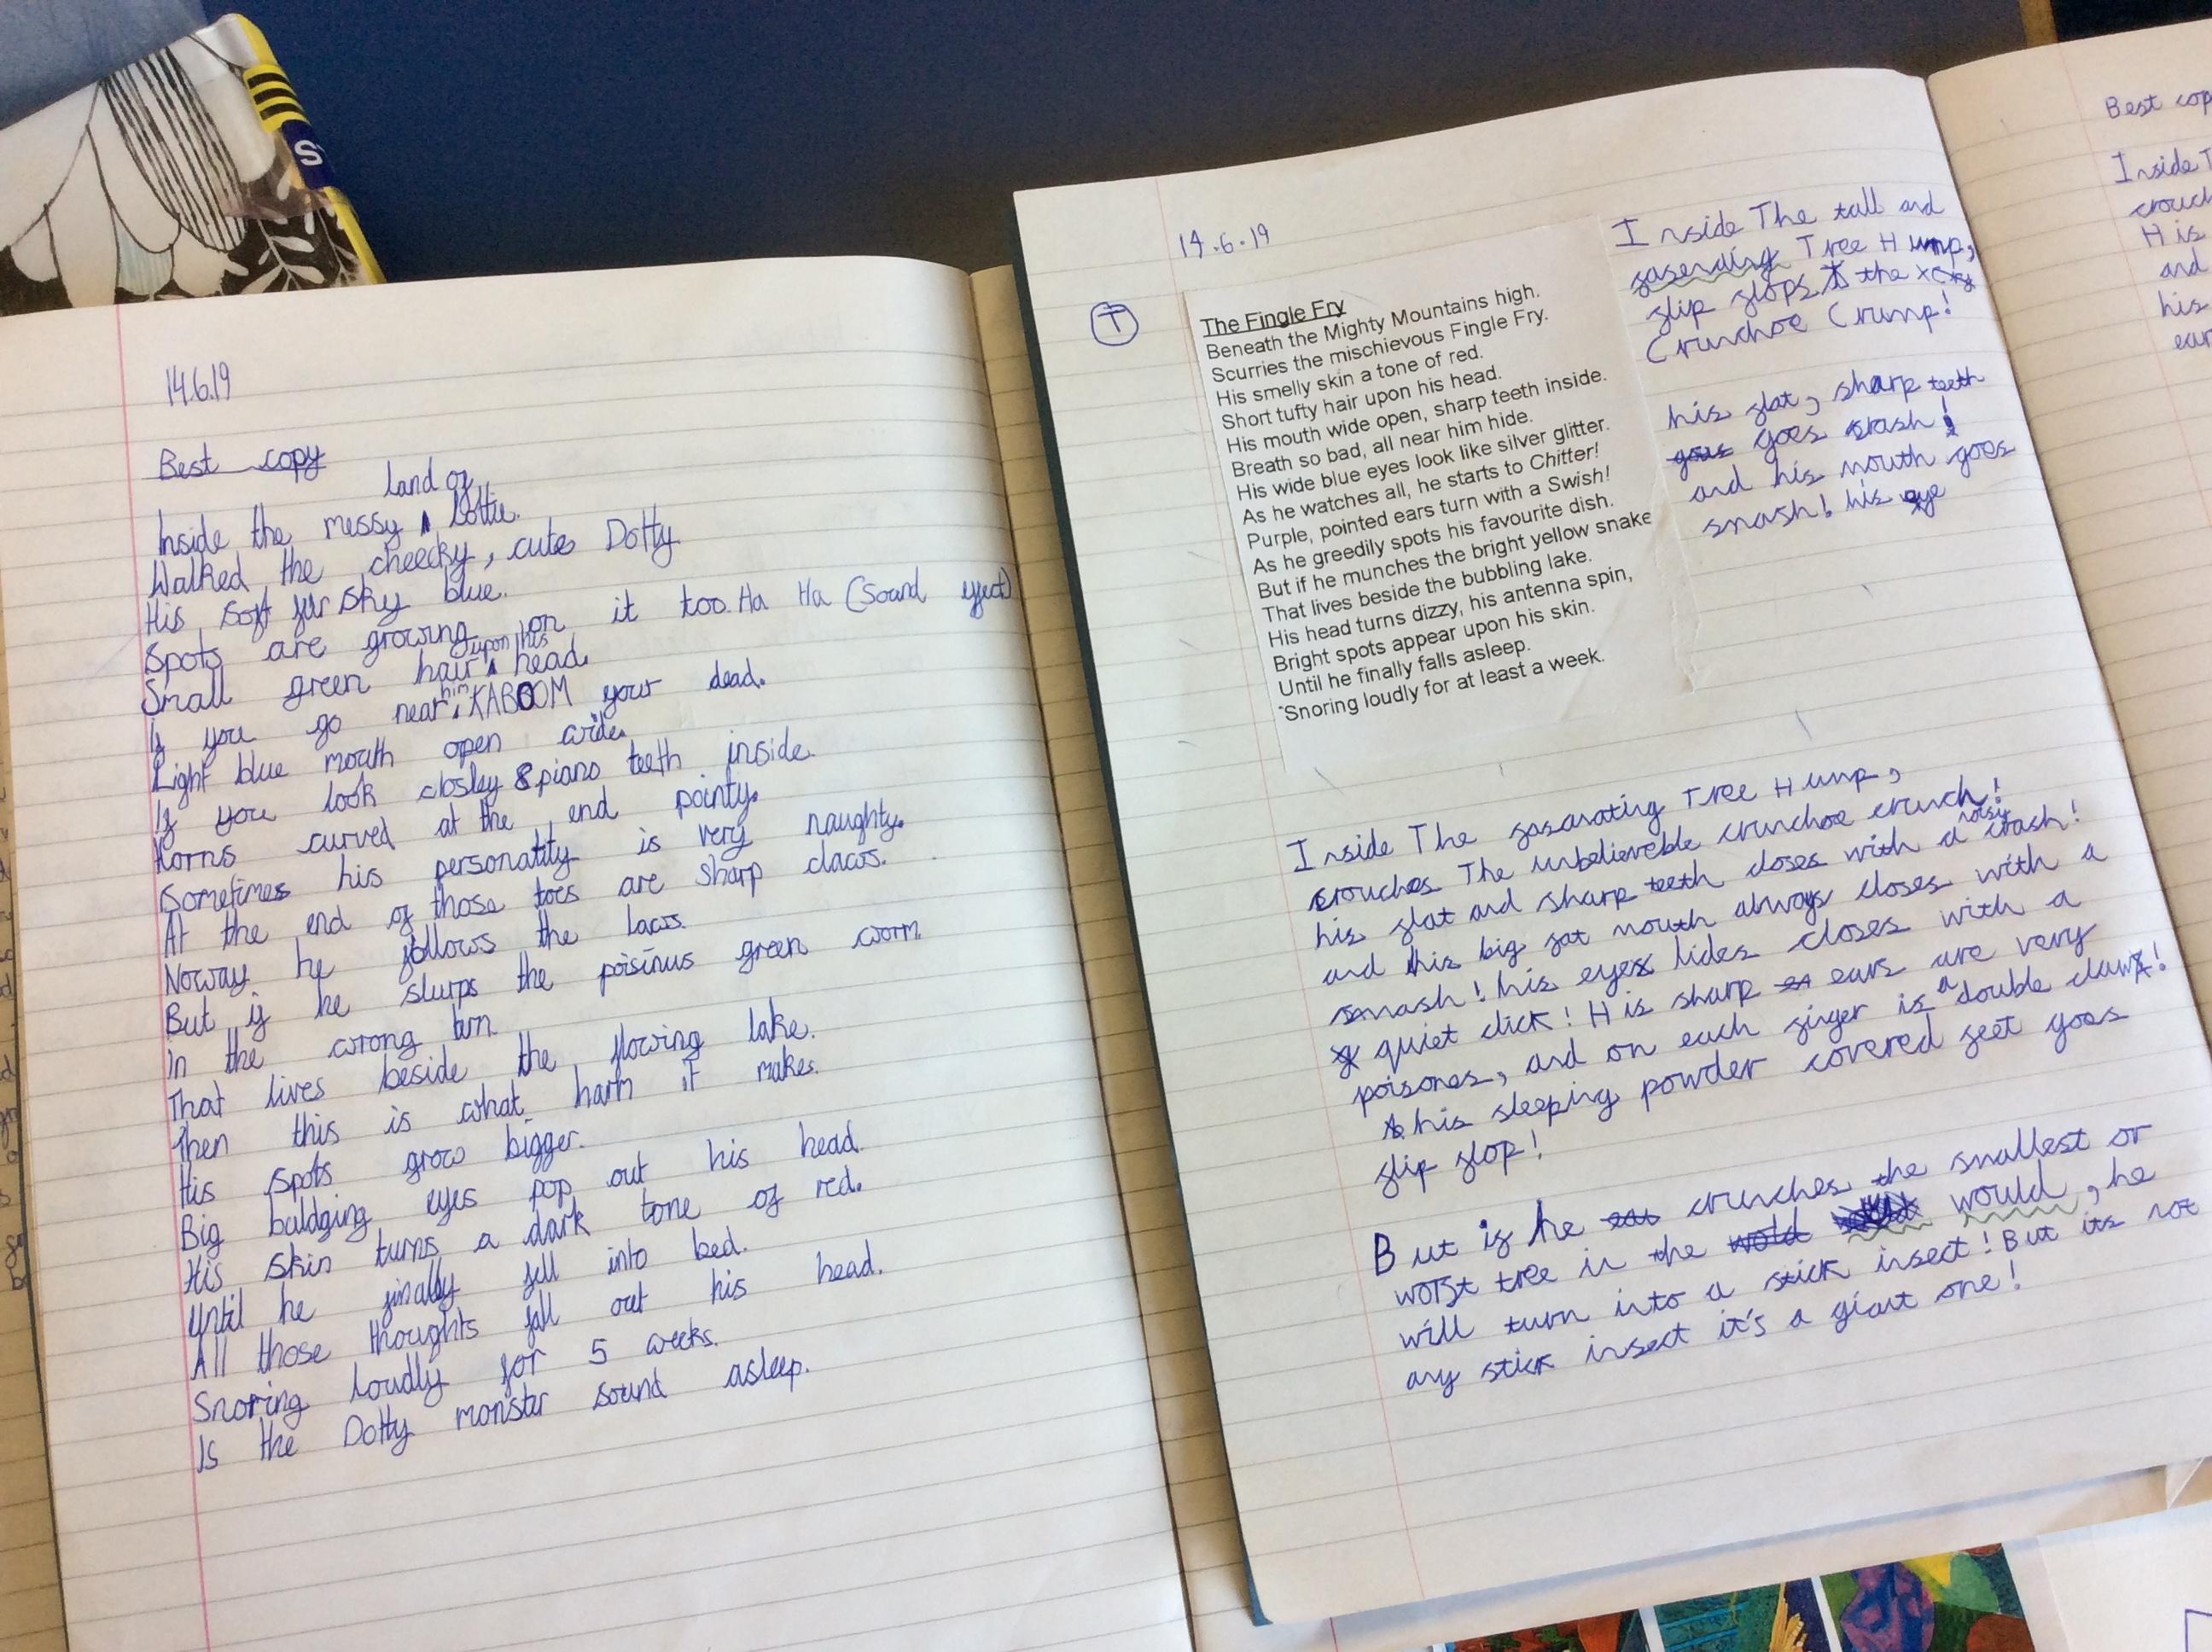 S
14.6.19
Best copy
land of
Inside the messy Dottie.
Walked the cheeky, cute Dotty
His soft fur sky blue.
Spots are growing on it too. Ha Ha (Sound effect)
upon his
Small green hair head.
him
If you go near KABOOM your dead.
Light blue mouth open wide.
If you look closley 8 piano teeth inside.
Horns curved at the end pointy.
Sometimes his personatity is very naughty.
At the end of those toes are sharp claws.
Noway he follows the laws.
But if he slurps the poisinus green worm.
In the wrong turn.
That lives beside the flowing lake.
Then this is what harm it makes.
His spots grow bigger.
Big buldging eyes pop out his head.
His skin turns a dark tone of red.
Until he finally fell into bed.
All those thoughts fall out his head.
Snoring loudly for 5 weeks.
Is the Dotty monster sound asleep.
14.6.19
T
The Fingle Fry
Beneath the Mighty Mountains high.
Scurries the mischievous Fingle Fry.
His smelly skin a tone of red.
Short tufty hair upon his head.
His mouth wide open, sharp teeth inside.
Breath so bad, all near him hide.
His wide blue eyes look like silver glitter.
As he watches all, he starts to Chitter!
Purple, pointed ears turn with a Swish!
As he greedily spots his favourite dish.
But if he munches the bright yellow snake
That lives beside the bubbling lake.
His head turns dizzy, his antenna spin,
Bright spots appear upon his skin.
Until he finally falls asleep.
Snoring loudly for at least a week.
Inside The tall and
Tree Hump,
flip flops the
Crunchoe Crump!
his flat, sharp teeth
goes goes crash!
and his mouth goes
smash! his eye
Inside The fasanating Tree Hump,
crouches The unbelieveble crunchoe crunch!
noisy
his flat and sharp teeth closes with a crash!
and this big fat mouth always closes with a
smash! his eye lides closes with a
quiet click! His sharp ears are very
poisones, and on each finger is a double claw!
his sleeping powder covered feet goes
flip flop!
But if he crunches the smallest or
worst tree in the wold would, he
will turn into a stick insect! But its not
any stick insect it's a giant one!
Best cop
Inside T
crouch
His
and
his
ear